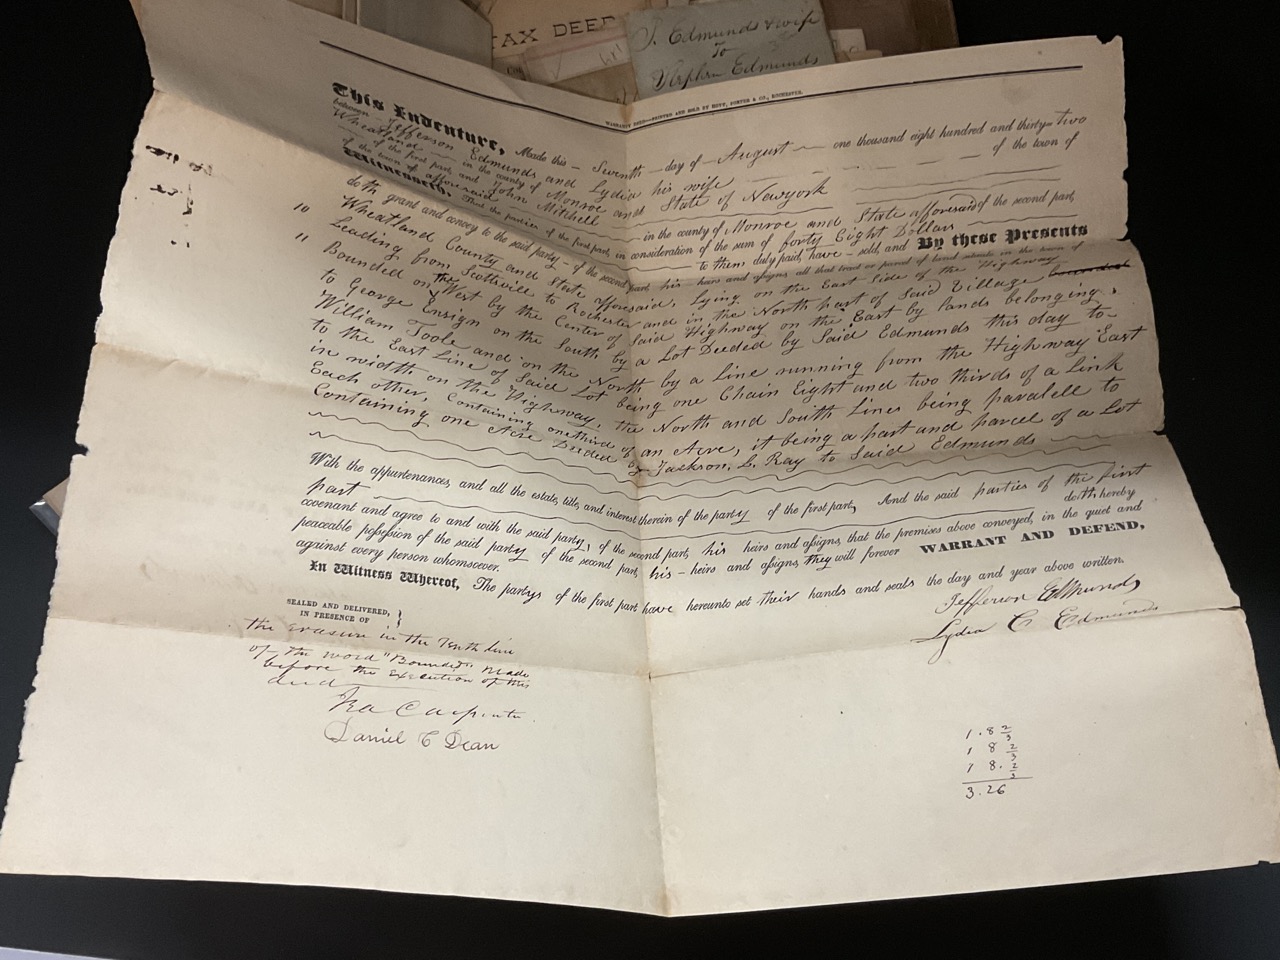 TAX DEED
J. Edmunds & wife
To
Stephen Edmunds
WARRANTY DEED—PRINTED AND SOLD BY HOYT, PORTER & CO., ROCHESTER.
This Indenture, Made this – Seventh – day of – August – one thousand eight hundred and thirty-two
between Jefferson Edmunds and Lydia his wife of the town of
Wheatland in the county of Monroe and State of Newyork
of the first part, and John Mitchell
of the town of aforesaid in the county of Monroe and State aforesaid of the second part,
Witnesseth, That the parties of the first part, in consideration of the sum of forty Eight Dollars
to them duly paid, have – sold, and By these Presents
doth grant and convey to the said party – of the second part, his – heirs and assigns, all that tract or parcel of land situate in the town of
Wheatland County and State afforesaid, Lying on the East Side of the Highway
10 Leading from Scottsville to Rochester and in the North part of Said Village
11 Bounded on the West by the Center of Said Highway on the East by lands belonging
to George Ensign on the South by a Lot Deeded by Said Edmunds this day to
William Toole and on the North by a Line running from the Highway East
to the East Line of Said Lot being one Chain Eight and two thirds of a Link
in width on the Highway, the North and South Lines being paralell to
Each other, Containing one third of an Acre, it being a part and parcel of a Lot
Containing one Acre Deeded by Jackson, L. Ray to Said Edmunds
With the appurtenances, and all the estate, title, and interest therein of the party of the first part, And the said parties of the first
part doth hereby
covenant and agree to and with the said party, of the second part, his heirs and assigns, that the premises above conveyed, in the quiet and
peaceable possession of the said party of the second part, his – heirs and assigns, they will forever WARRANT AND DEFEND,
against every person whomsoever.
In Witness Whereof, The partys of the first part have hereunto set their hands and seals the day and year above written.
SEALED AND DELIVERED,
IN PRESENCE OF
Jefferson Edmunds
Lydia C Edmunds
the erasure in the Tenth line
of the word "Bounded" made
before the execution of this
deed
Ira Carpenter
Daniel C Dean
1.8 2/3
1 8 2/3
1 8. 2/3
3.26